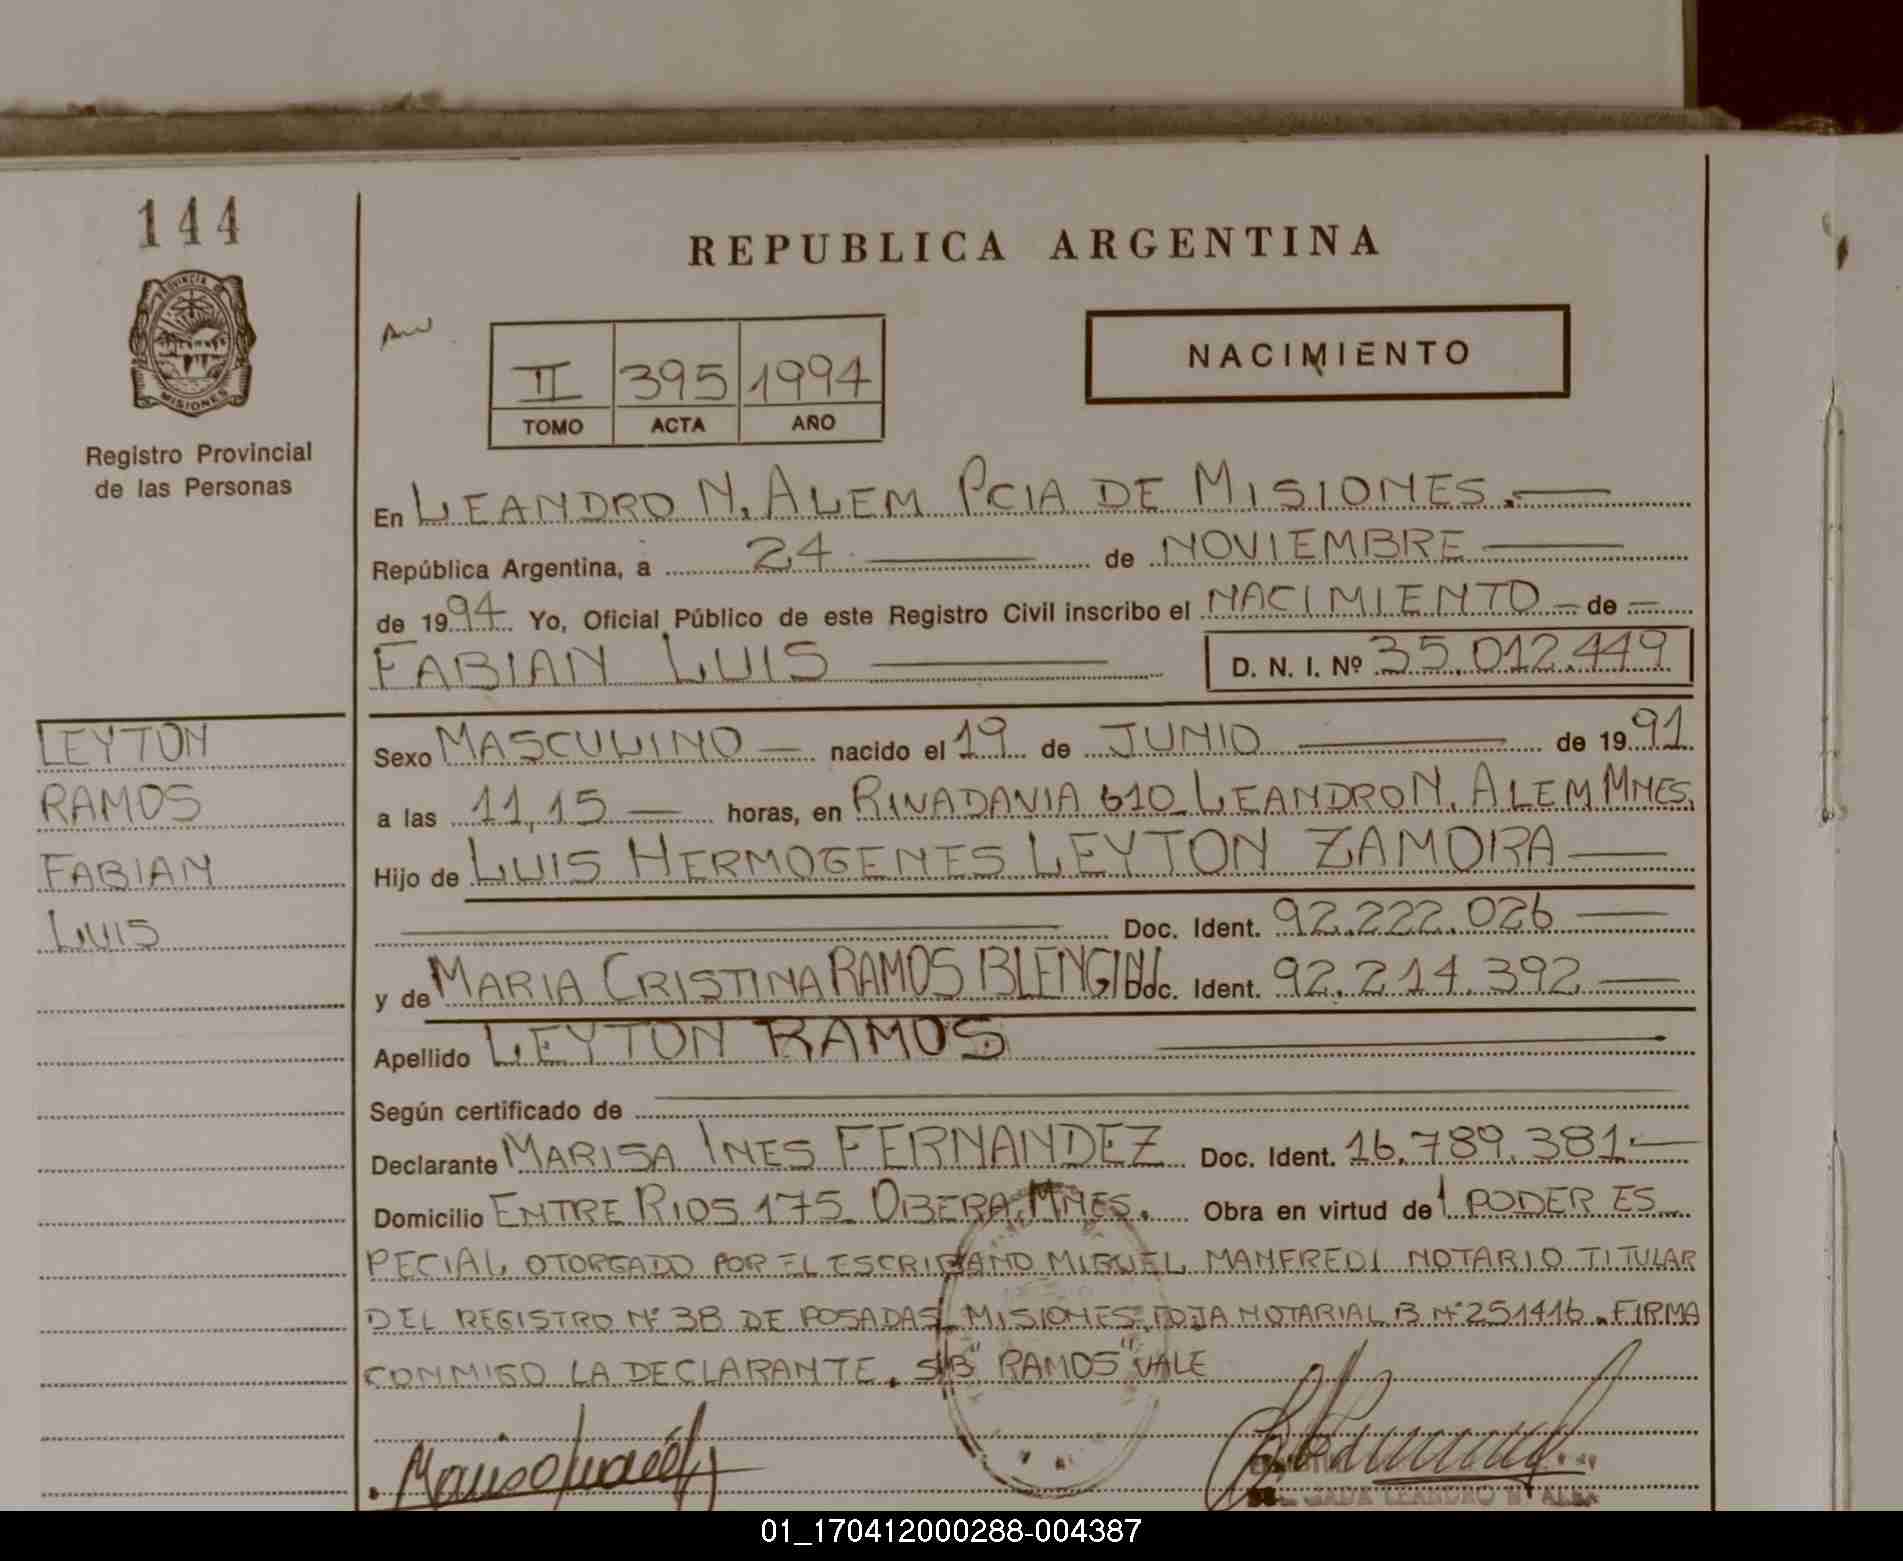 144
PROVINCIA DE
MISIONES
Registro Provincial
de las Personas
LEYTON
RAMOS
FABIAN
LUIS
REPUBLICA ARGENTINA
II 395 1994
TOMO ACTA AÑO
NACIMIENTO
En LEANDRO N. ALEM PCIA DE MISIONES.
República Argentina, a 24 de NOVIEMBRE
de 1994 Yo, Oficial Público de este Registro Civil inscribo el NACIMIENTO de
FABIAN LUIS D. N. I. Nº 35.012.449
Sexo MASCULINO nacido el 19 de JUNIO de 1991
a las 11,15 horas, en RIVADAVIA 610 LEANDRO N. ALEM MNES.
Hijo de LUIS HERMOGENES LEYTON ZAMORA
Doc. Ident. 92.222.026
y de MARIA CRISTINA RAMOS BLENGINI Doc. Ident. 92.214.392
Apellido LEYTON RAMOS
Según certificado de
Declarante MARISA INES FERNANDEZ Doc. Ident. 16.789.381
Domicilio ENTRE RIOS 175 OBERA, MNES. Obra en virtud de PODER ES
PECIAL OTORGADO POR EL ESCRIBANO MIGUEL MANFREDI NOTARIO TITULAR
DEL REGISTRO Nº 38 DE POSADAS MISIONES, FOJA NOTARIAL B Nº 251416. FIRMA
CONMIGO LA DECLARANTE. S/B "RAMOS" VALE
LEANDRO N. ALEM
01_170412000288-004387